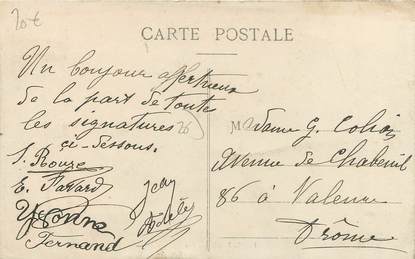 20€
CARTE POSTALE
Un bonjour affectueux
de la part de toute
les signatures
ci-dessous.
J. Rouze
E. Favard
Yvonne
Fernand
Jean
Madame G.
avenue de Chabeuil
86 à Valence
Drôme